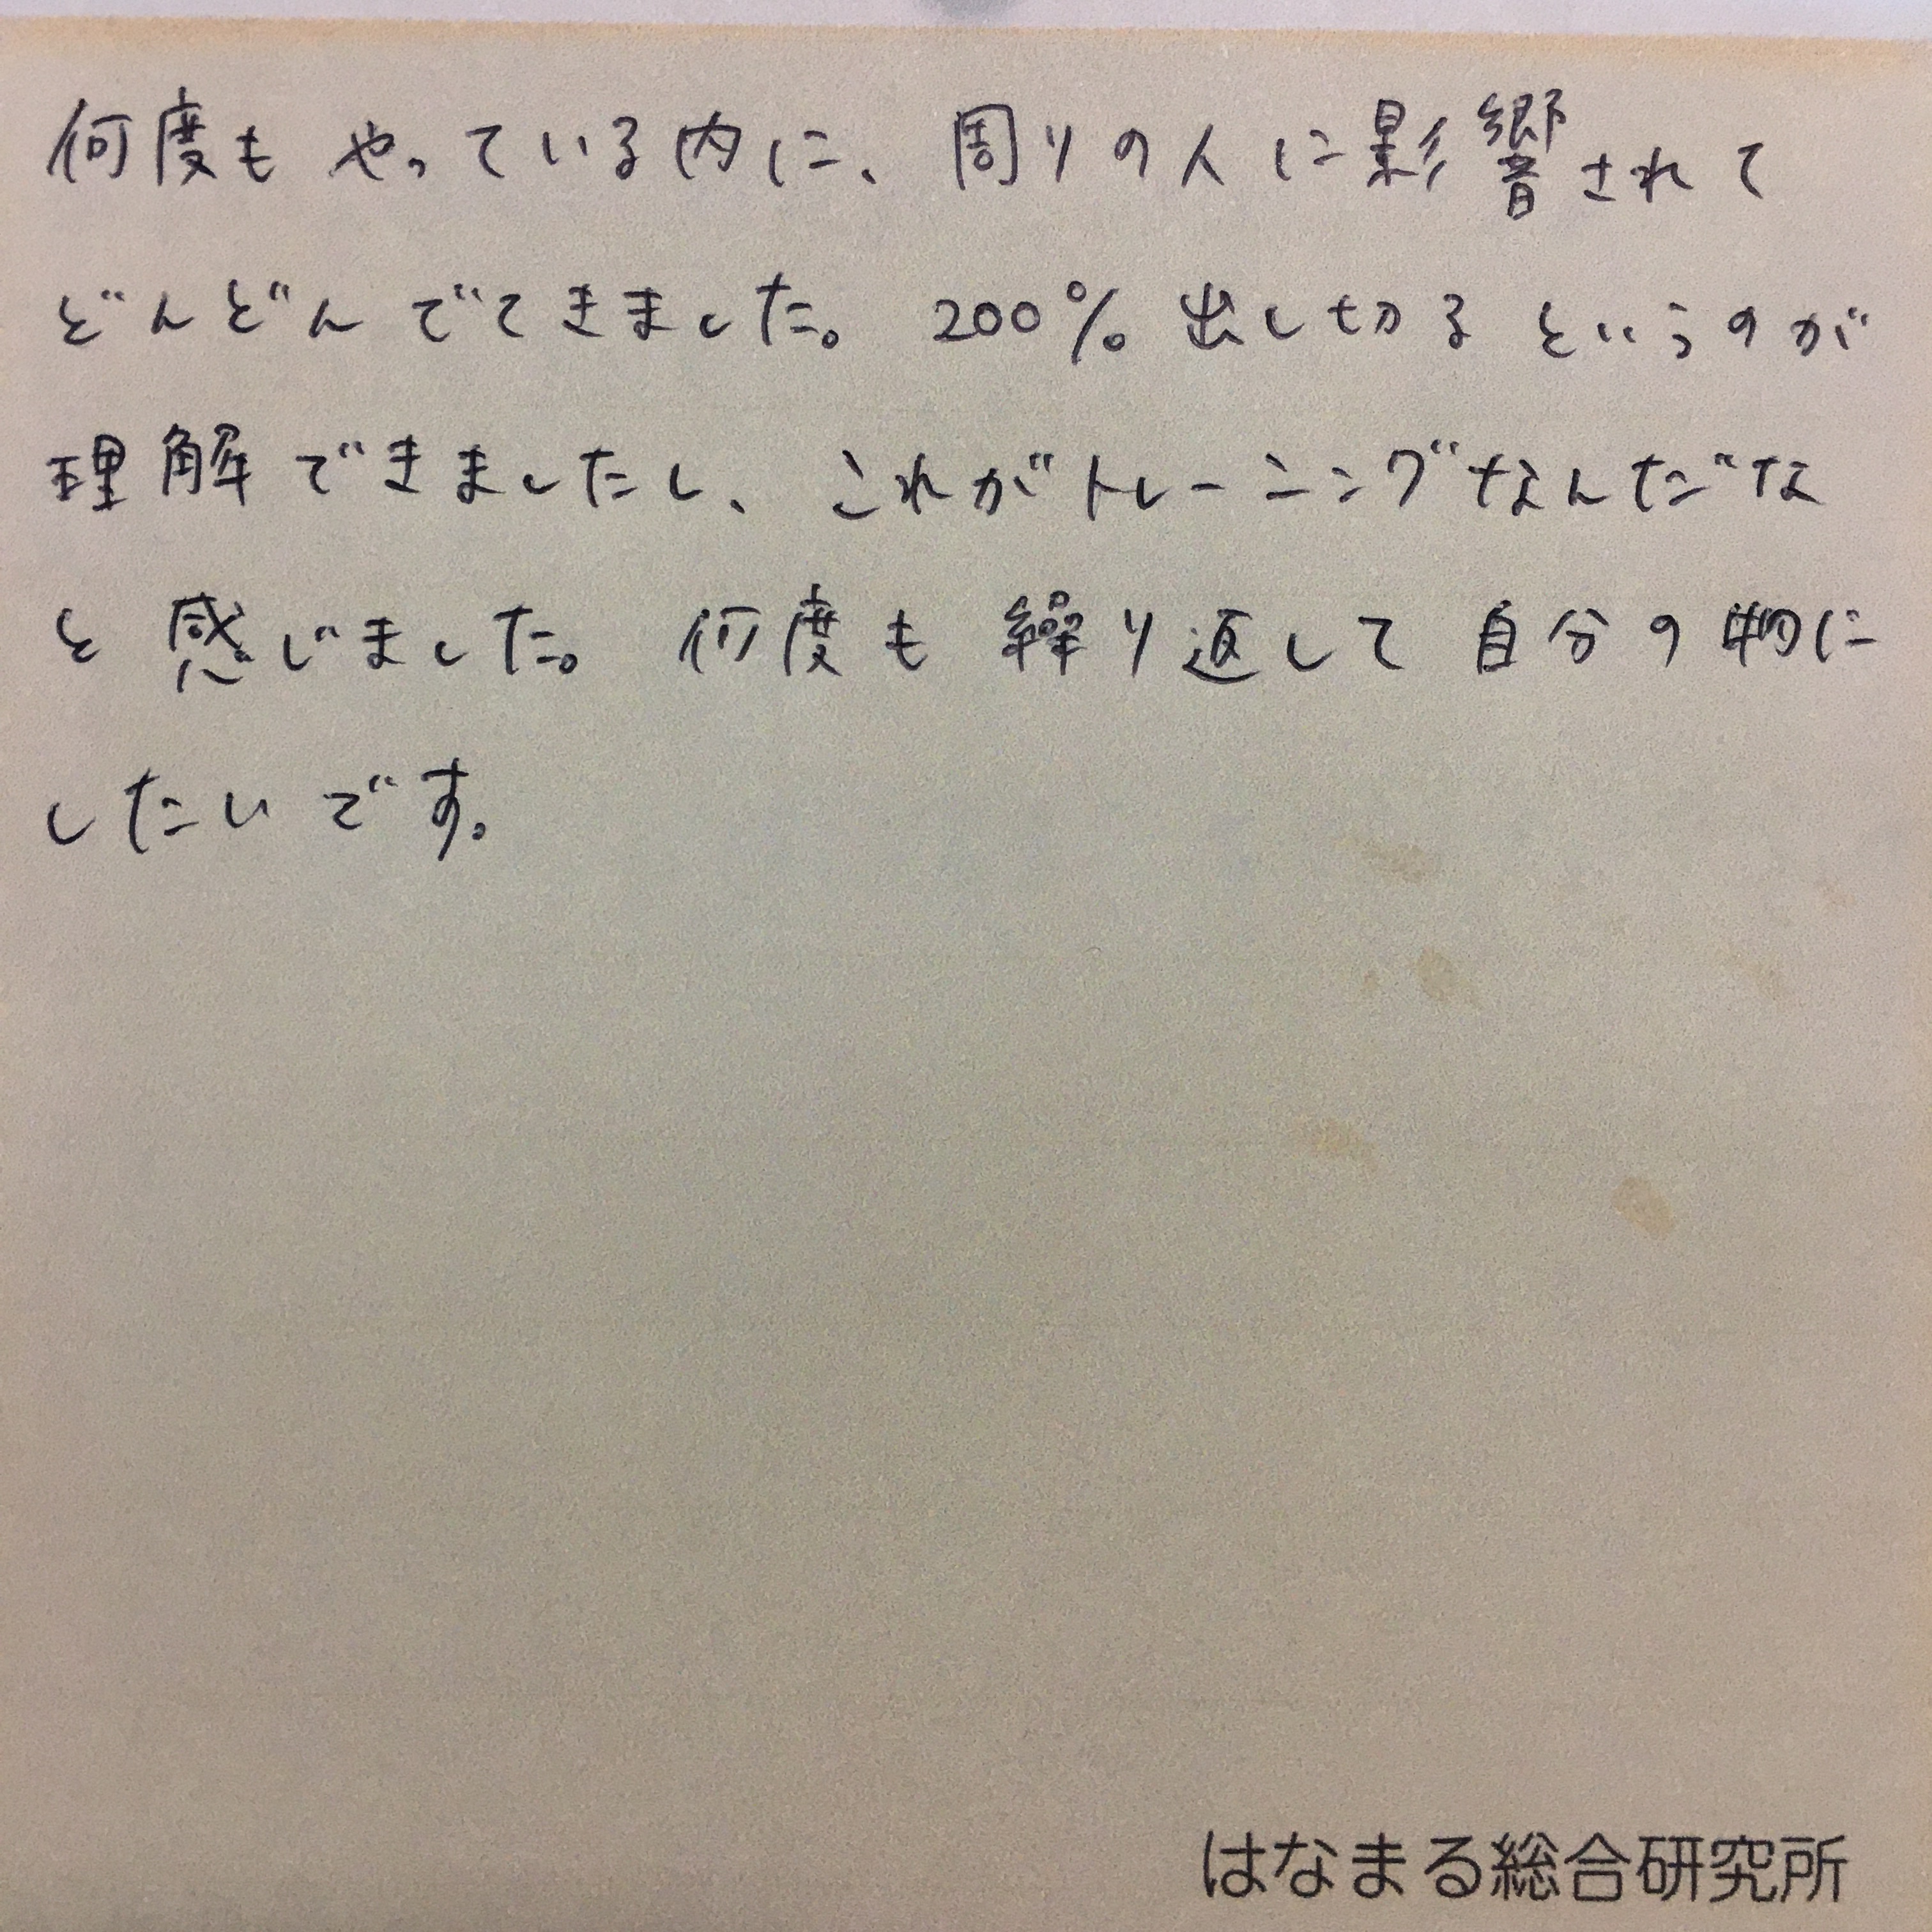 何度もやっている内に、周りの人に影響されて
どんどんでてきました。200%出し切るというのが
理解できましたし、これがトレーニングなんだな
と感じました。何度も繰り返して自分の物に
したいです。
はなまる総合研究所